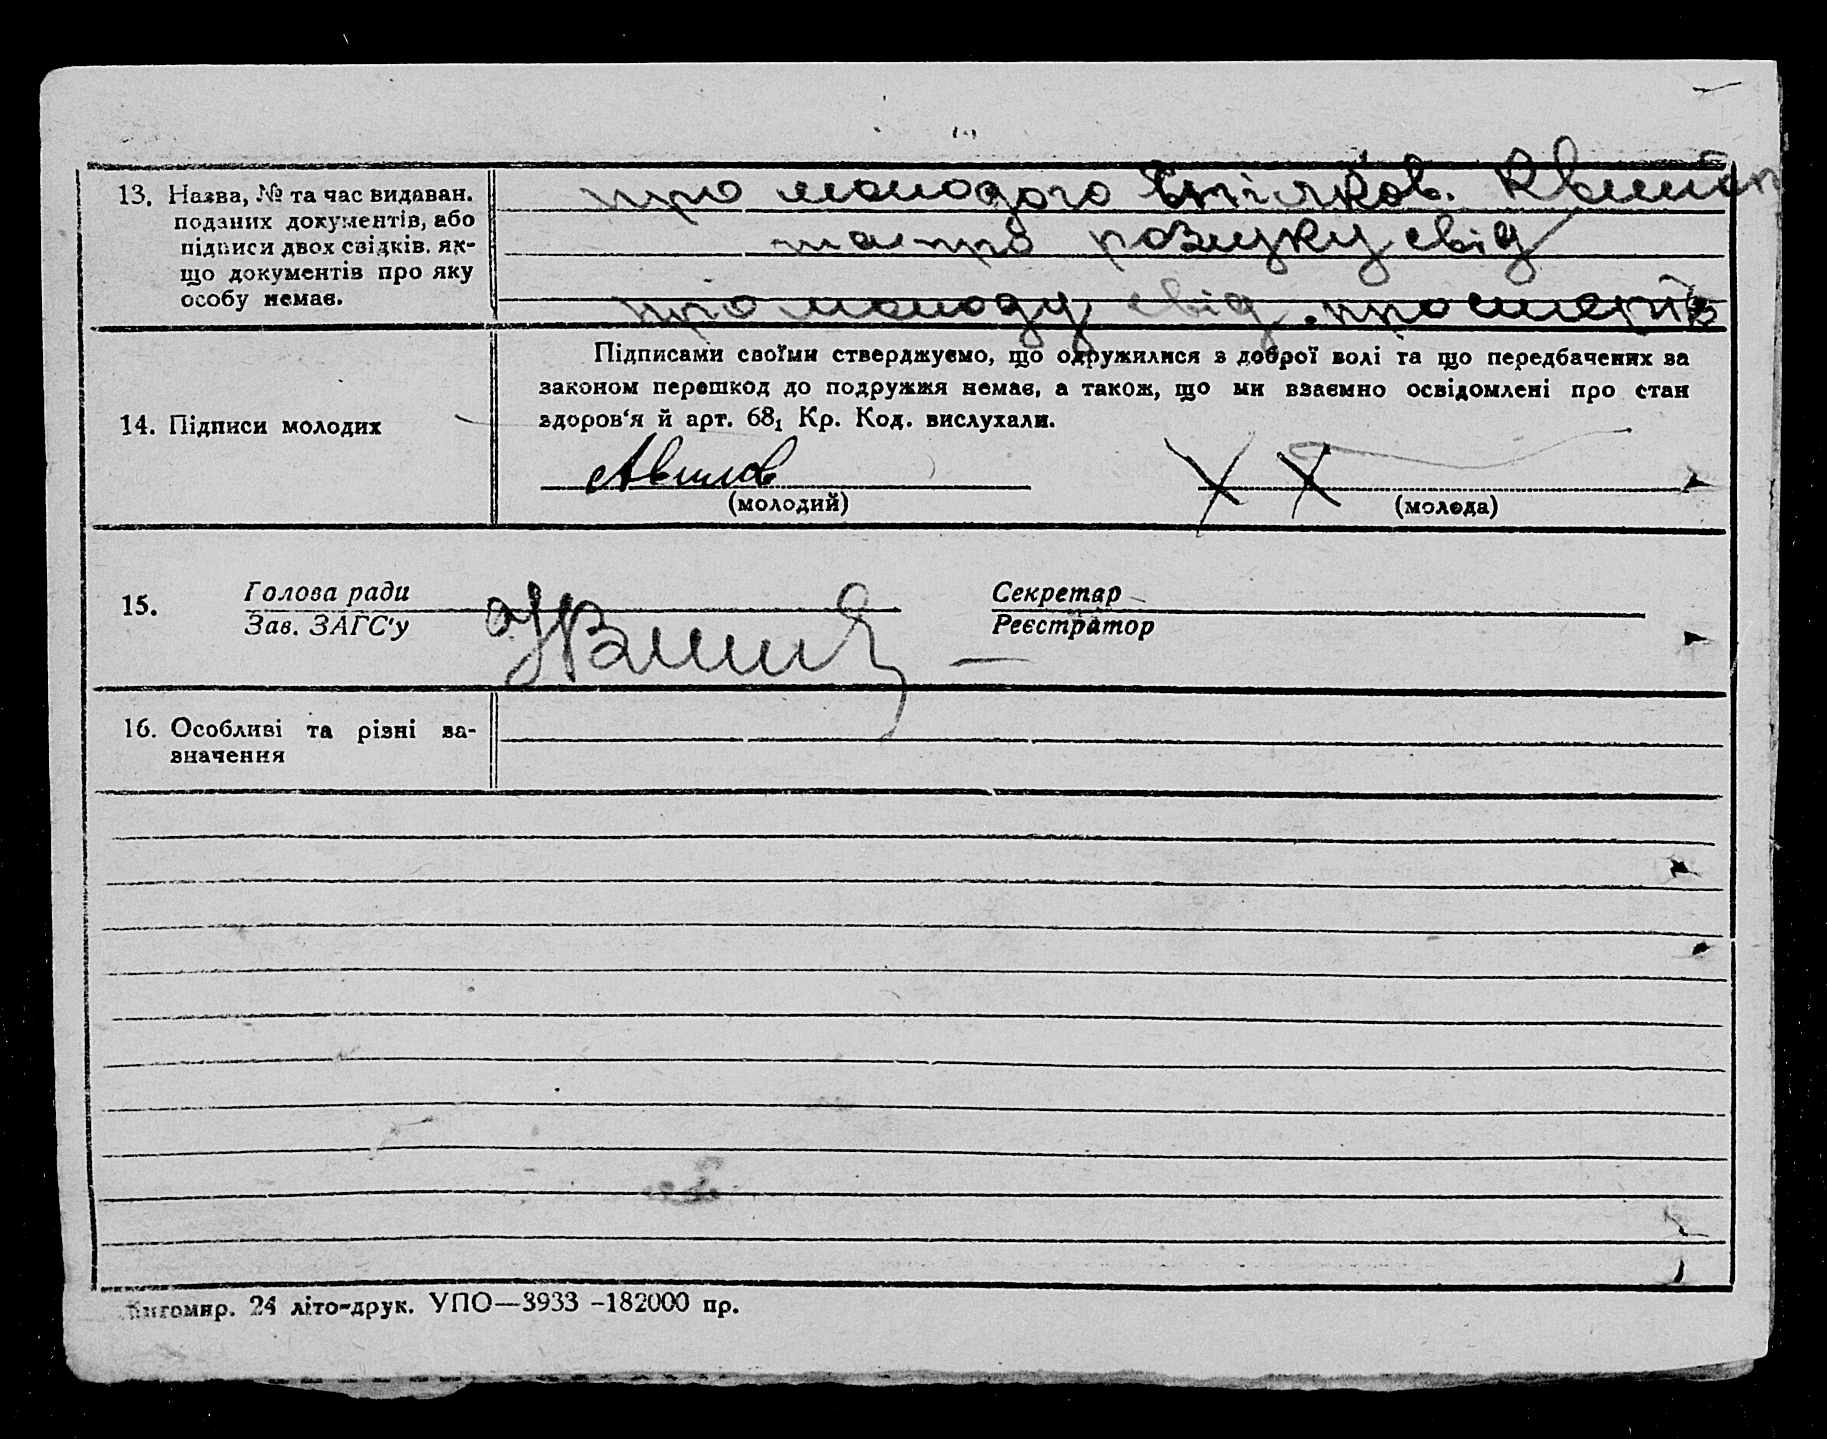 13. Назва, № та час видаван.
поданих документів, або
підписи двох свідків, як-
що документів про яку
особу немає.
про молодого Спілков. Квиток
та про розлуку свід
про молоду свід. про смерть
14. Підписи молодих
Підписами своїми стверджуємо, що одружилися з доброї волі та що передбачених за
законом перешкод до подружжя немає, а також, що ми взаємно освідомлені про стан
здоров'я й арт. 68₁ Кр. Код. вислухали.
Авилов
(молодий)
X X
(молода)
15.
Голова ради
Зав. ЗАГС'у
Секретар
Реєстратор
16. Особливі та різні за-
значення
Житомир. 24 літо-друк. УПО—3933 -182000 пр.